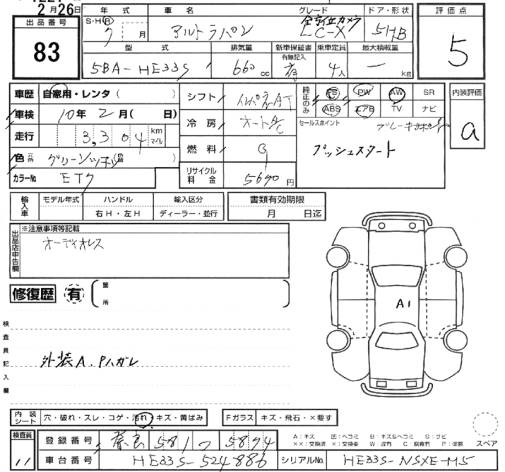 2月26日
出品番号 83
年式 S・H・R 7 月
車名 アルトラパン
グレード 全方位カメラ LC-X
ドア・形状 5HB
評価点 5
型式 5BA-HE33S
排気量 660 cc
新車保証書 有無記入 有
乗車定員 4人
最大積載量 ― kg
車歴 自家用・レンタ( )
車検 10年2月( )日
走行 3,304 km マイル
色
カラーNo. 
シフト インパネAT
冷房 オートAC
燃料 G
リサイクル料金 5690円
純正のみ PS PW AW SR
ABS エアB TV ナビ
セールスポイント
プッシュスタート
内装評価 a
輸入車 モデル年式 ハンドル 右H・左H 輸入区分 ディーラー・並行
書類有効期限 月 日迄
出品店申告欄 ※注意事項等記載
オーディオレス
修復歴 有 箇所
A1
検査員記入欄
外装A.Pハガレ
内装シート 穴・破れ・スレ・コゲ・汚れ・キズ・黄ばみ
Fガラス キズ・飛石・×要す
スペア
検査員 11
登録番号 奈良 581 つ 5874
車台番号 HE33S-524886
シリアルNo. HE33S-NSXE-M5